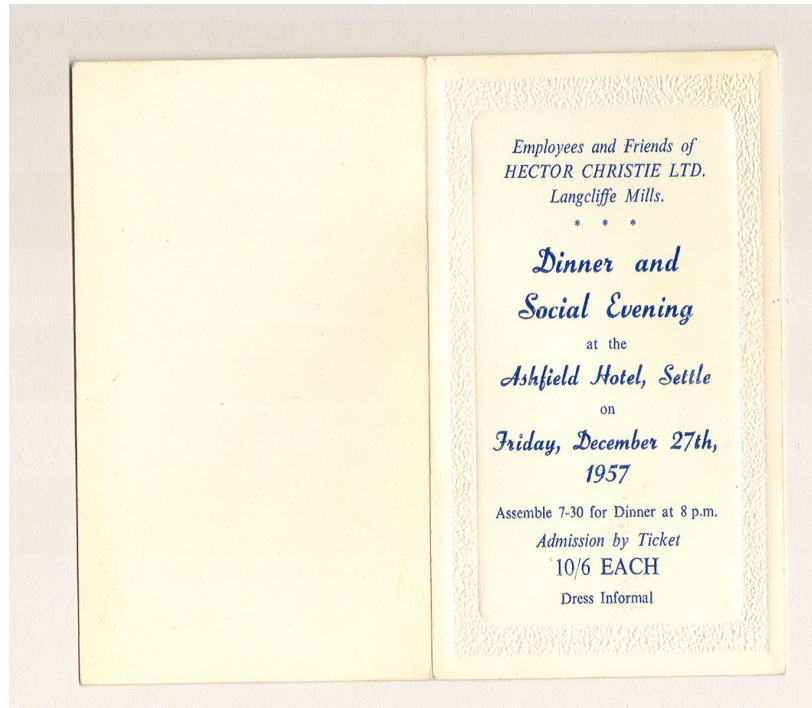 Employees and Friends of
HECTOR CHRISTIE LTD.
Langcliffe Mills.
* * *
Dinner and
Social Evening
at the
Ashfield Hotel, Settle
on
Friday, December 27th,
1957
Assemble 7-30 for Dinner at 8 p.m.
Admission by Ticket
10/6 EACH
Dress Informal